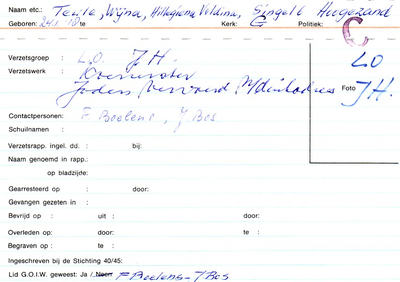 Naam etc.: Teule, Wijna, Hillegiena Veldina, Singel 1 Hoogezand
Geboren: te: Kerk: G Politiek:
C
Verzetsgroep : L.O. J H LO
Verzetswerk : Koerierster Foto J.H.
Joden vervoerd
Contactpersonen: F Boelens, J Bos
Schuilnaam :
Verzetsrapp. ingel. dd. : bij:
Naam genoemd in rapp.:
op bladzijde:
Gearresteerd op : door:
Gevangen gezeten in :
Bevrijd op : uit : door:
Overleden op : door: te :
Begraven op : te :
Ingeschreven bij de Stichting 40/45:
Lid G.O.I.W. geweest: Ja / Neen F Boelens - J Bos